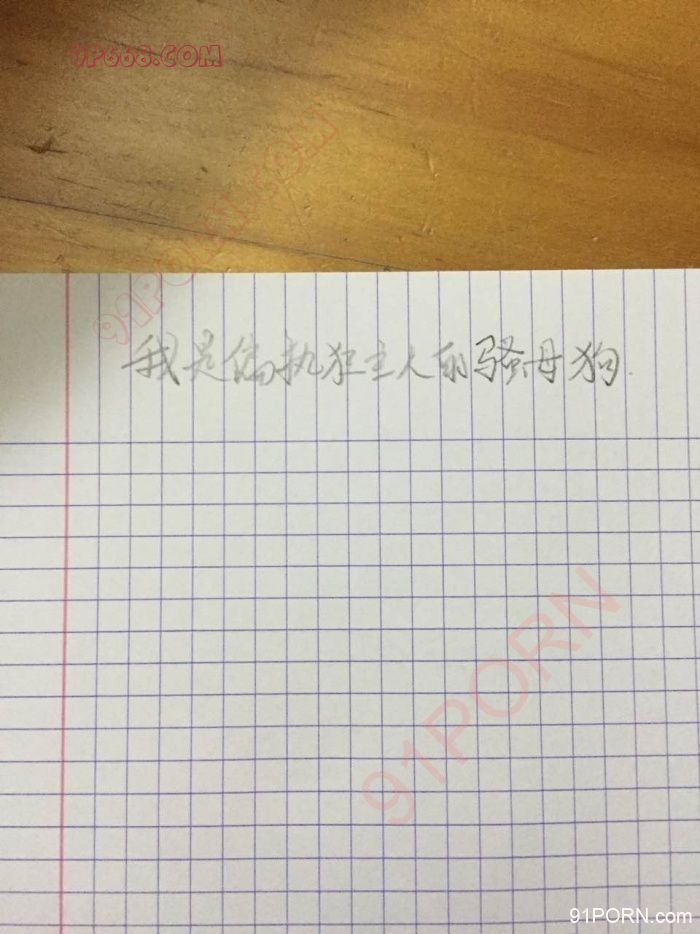 7P668.COM
91PORN.COM
我是偏执狂主人的骚母狗.
91PORN
91PORN.com